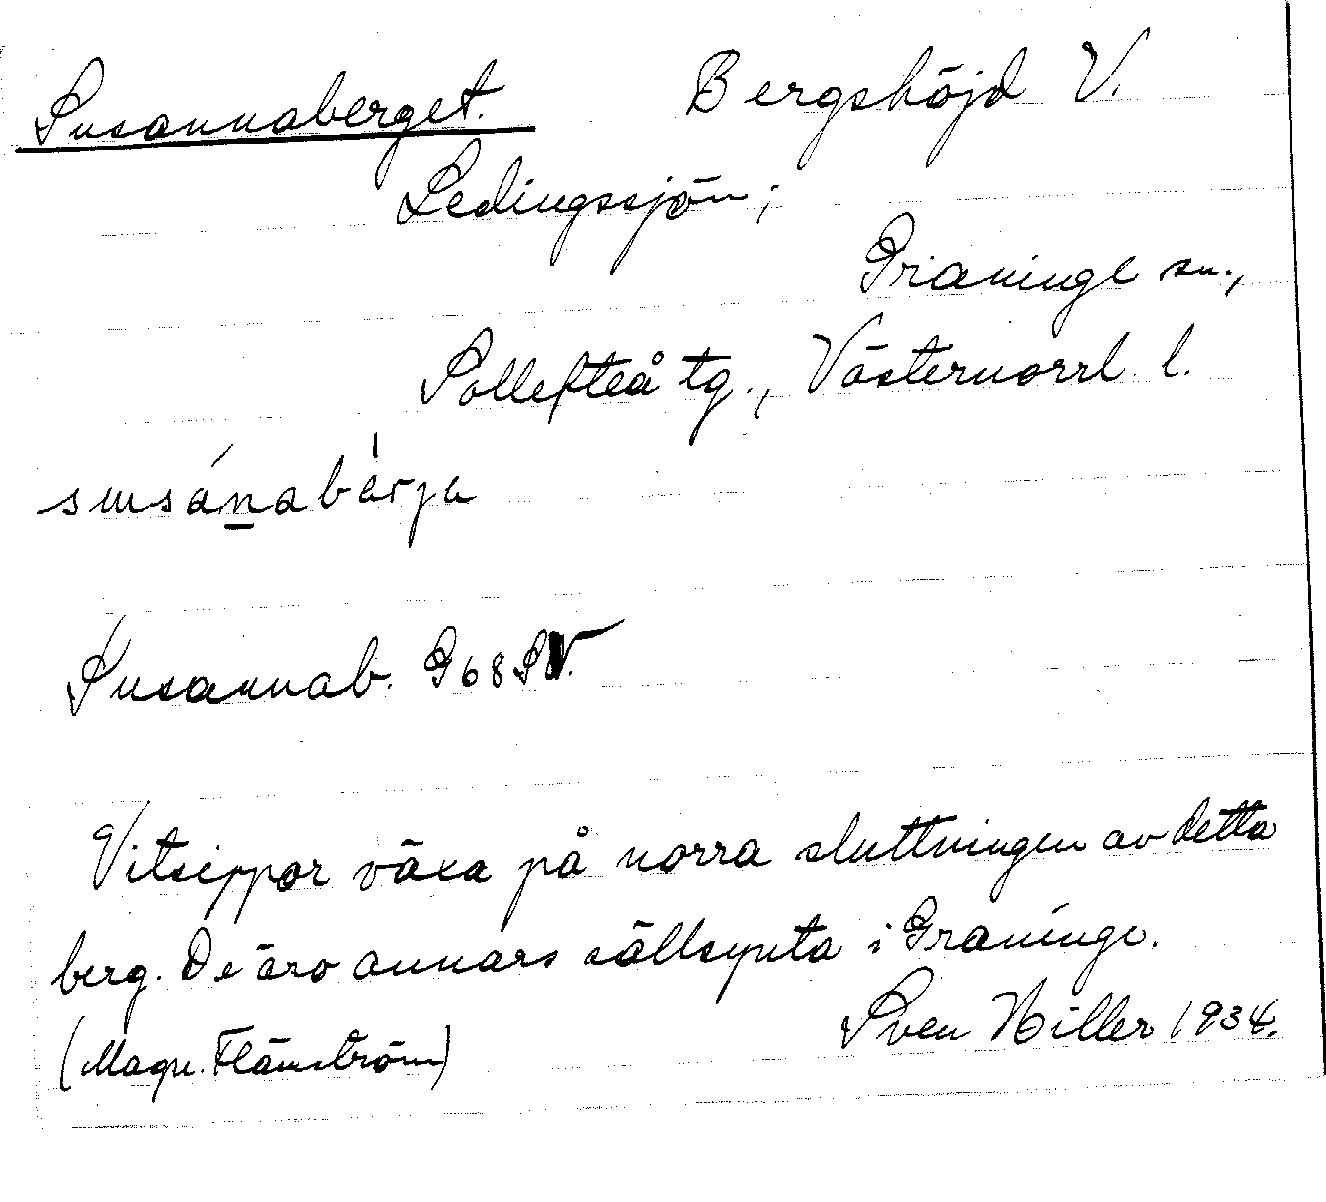 Susannaberget. Bergshöjd V.
Ledingssjön;
Graninge sn.,
Sollefteå tg., Västernorrl. l.
Susannab. G68SV.
Vitsippor växa på norra sluttningen av detta
berg. De äro annars sällsynta i Graninge.
(Magn. Flämström) Sven Hiller 1934.